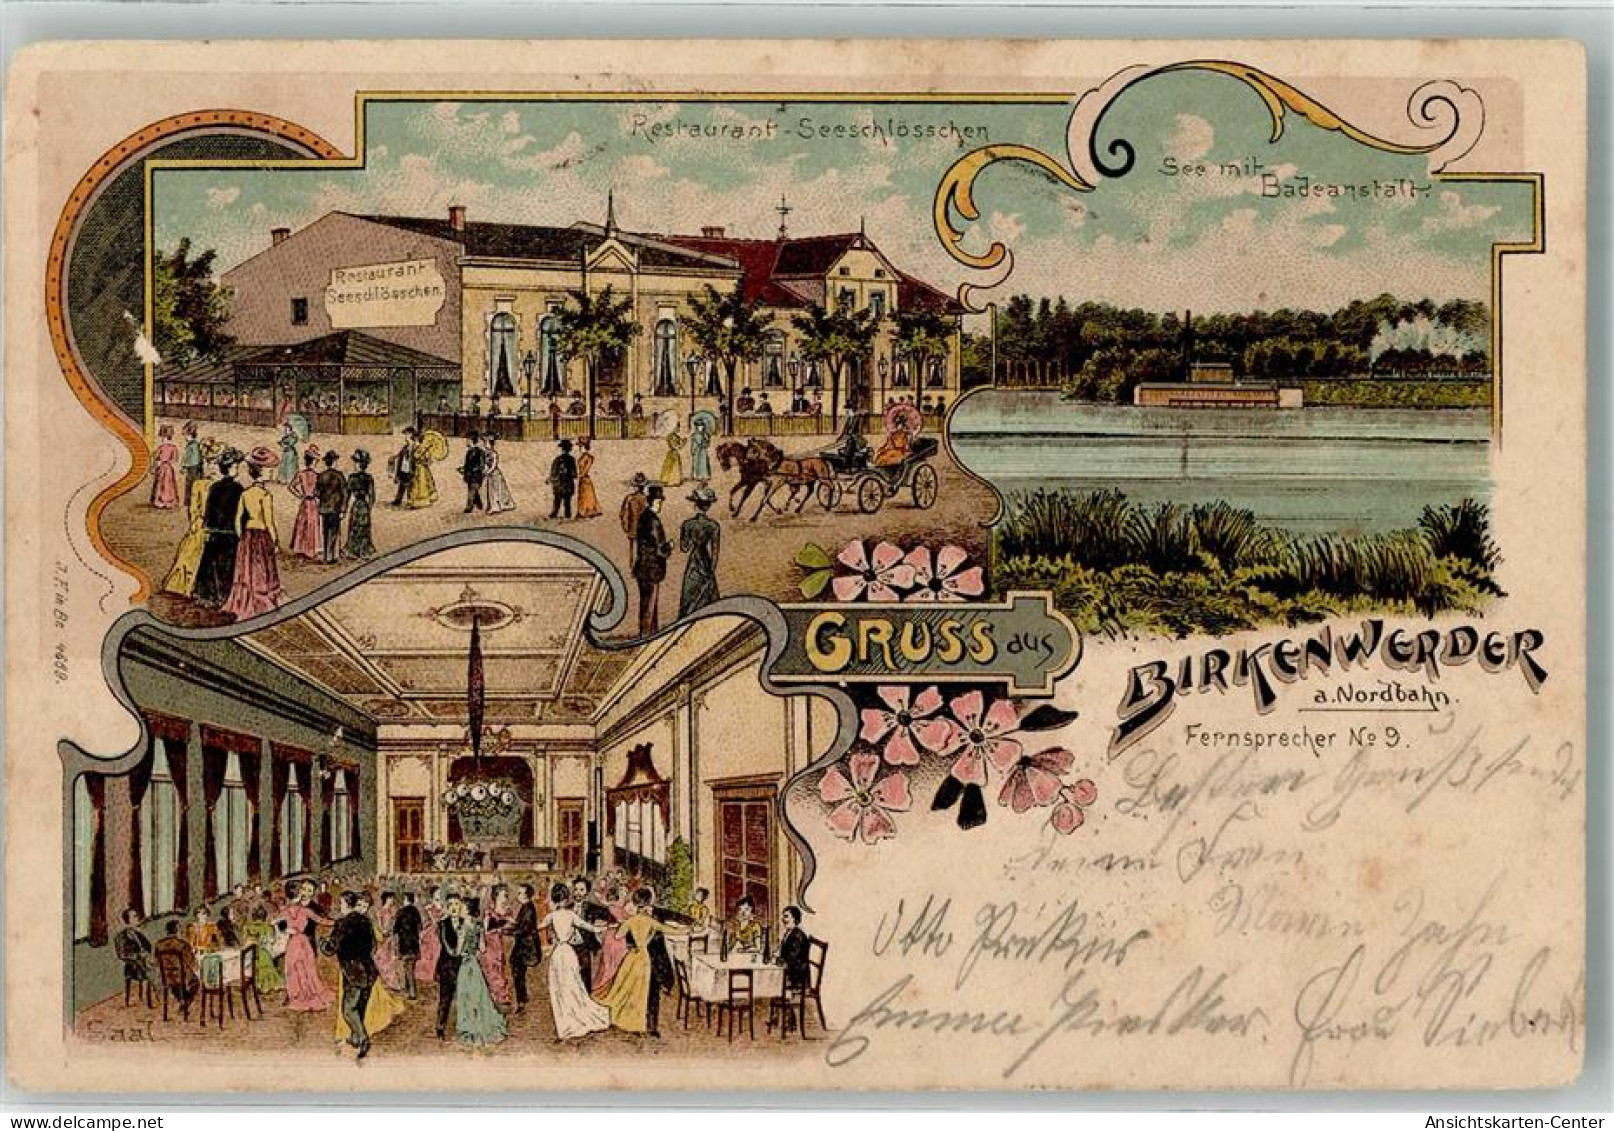 Restaurant-Seeschlösschen
See mit
Badeanstalt.
Restaurant
Seeschlösschen.
GRUSS aus
BIRKENWERDER
a. Nordbahn.
Fernsprecher No 9.
sendet
deine Frau
Otto
Emma
Frau
Saal
4659.
Ansichtskarten-Center